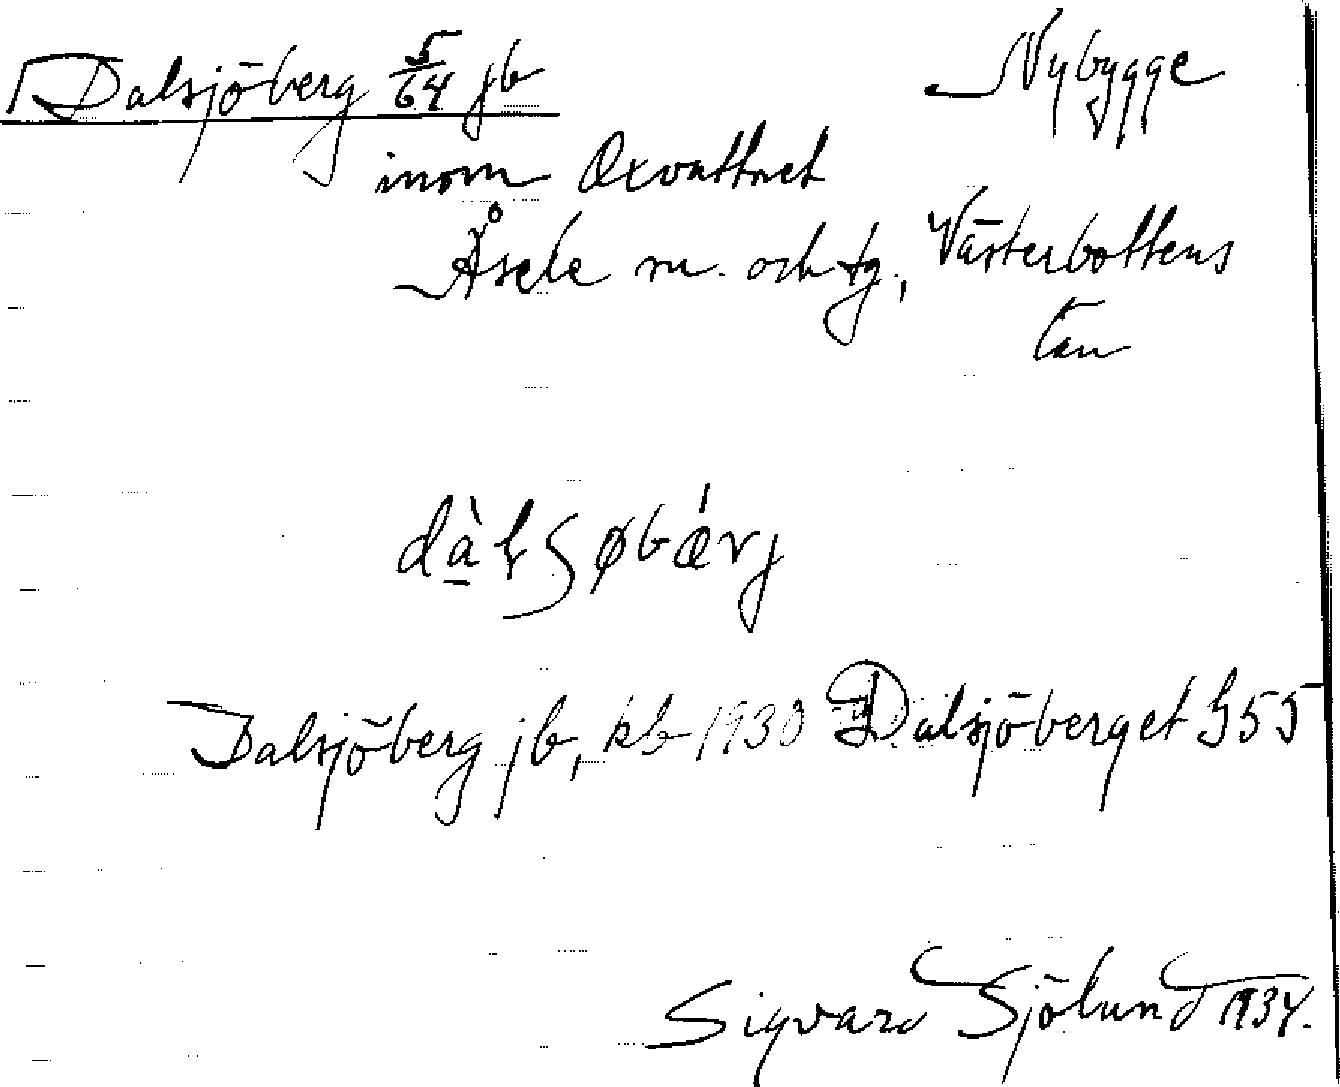 Dalsjöberg 5/64 jb Nybygge
inom Oxvattnet
Åsele sn. och tg, Västerbottens
län
Dalsjöberg jb, kb 1930 Dalsjöberget S55
Sigvard Sjölund 1934.